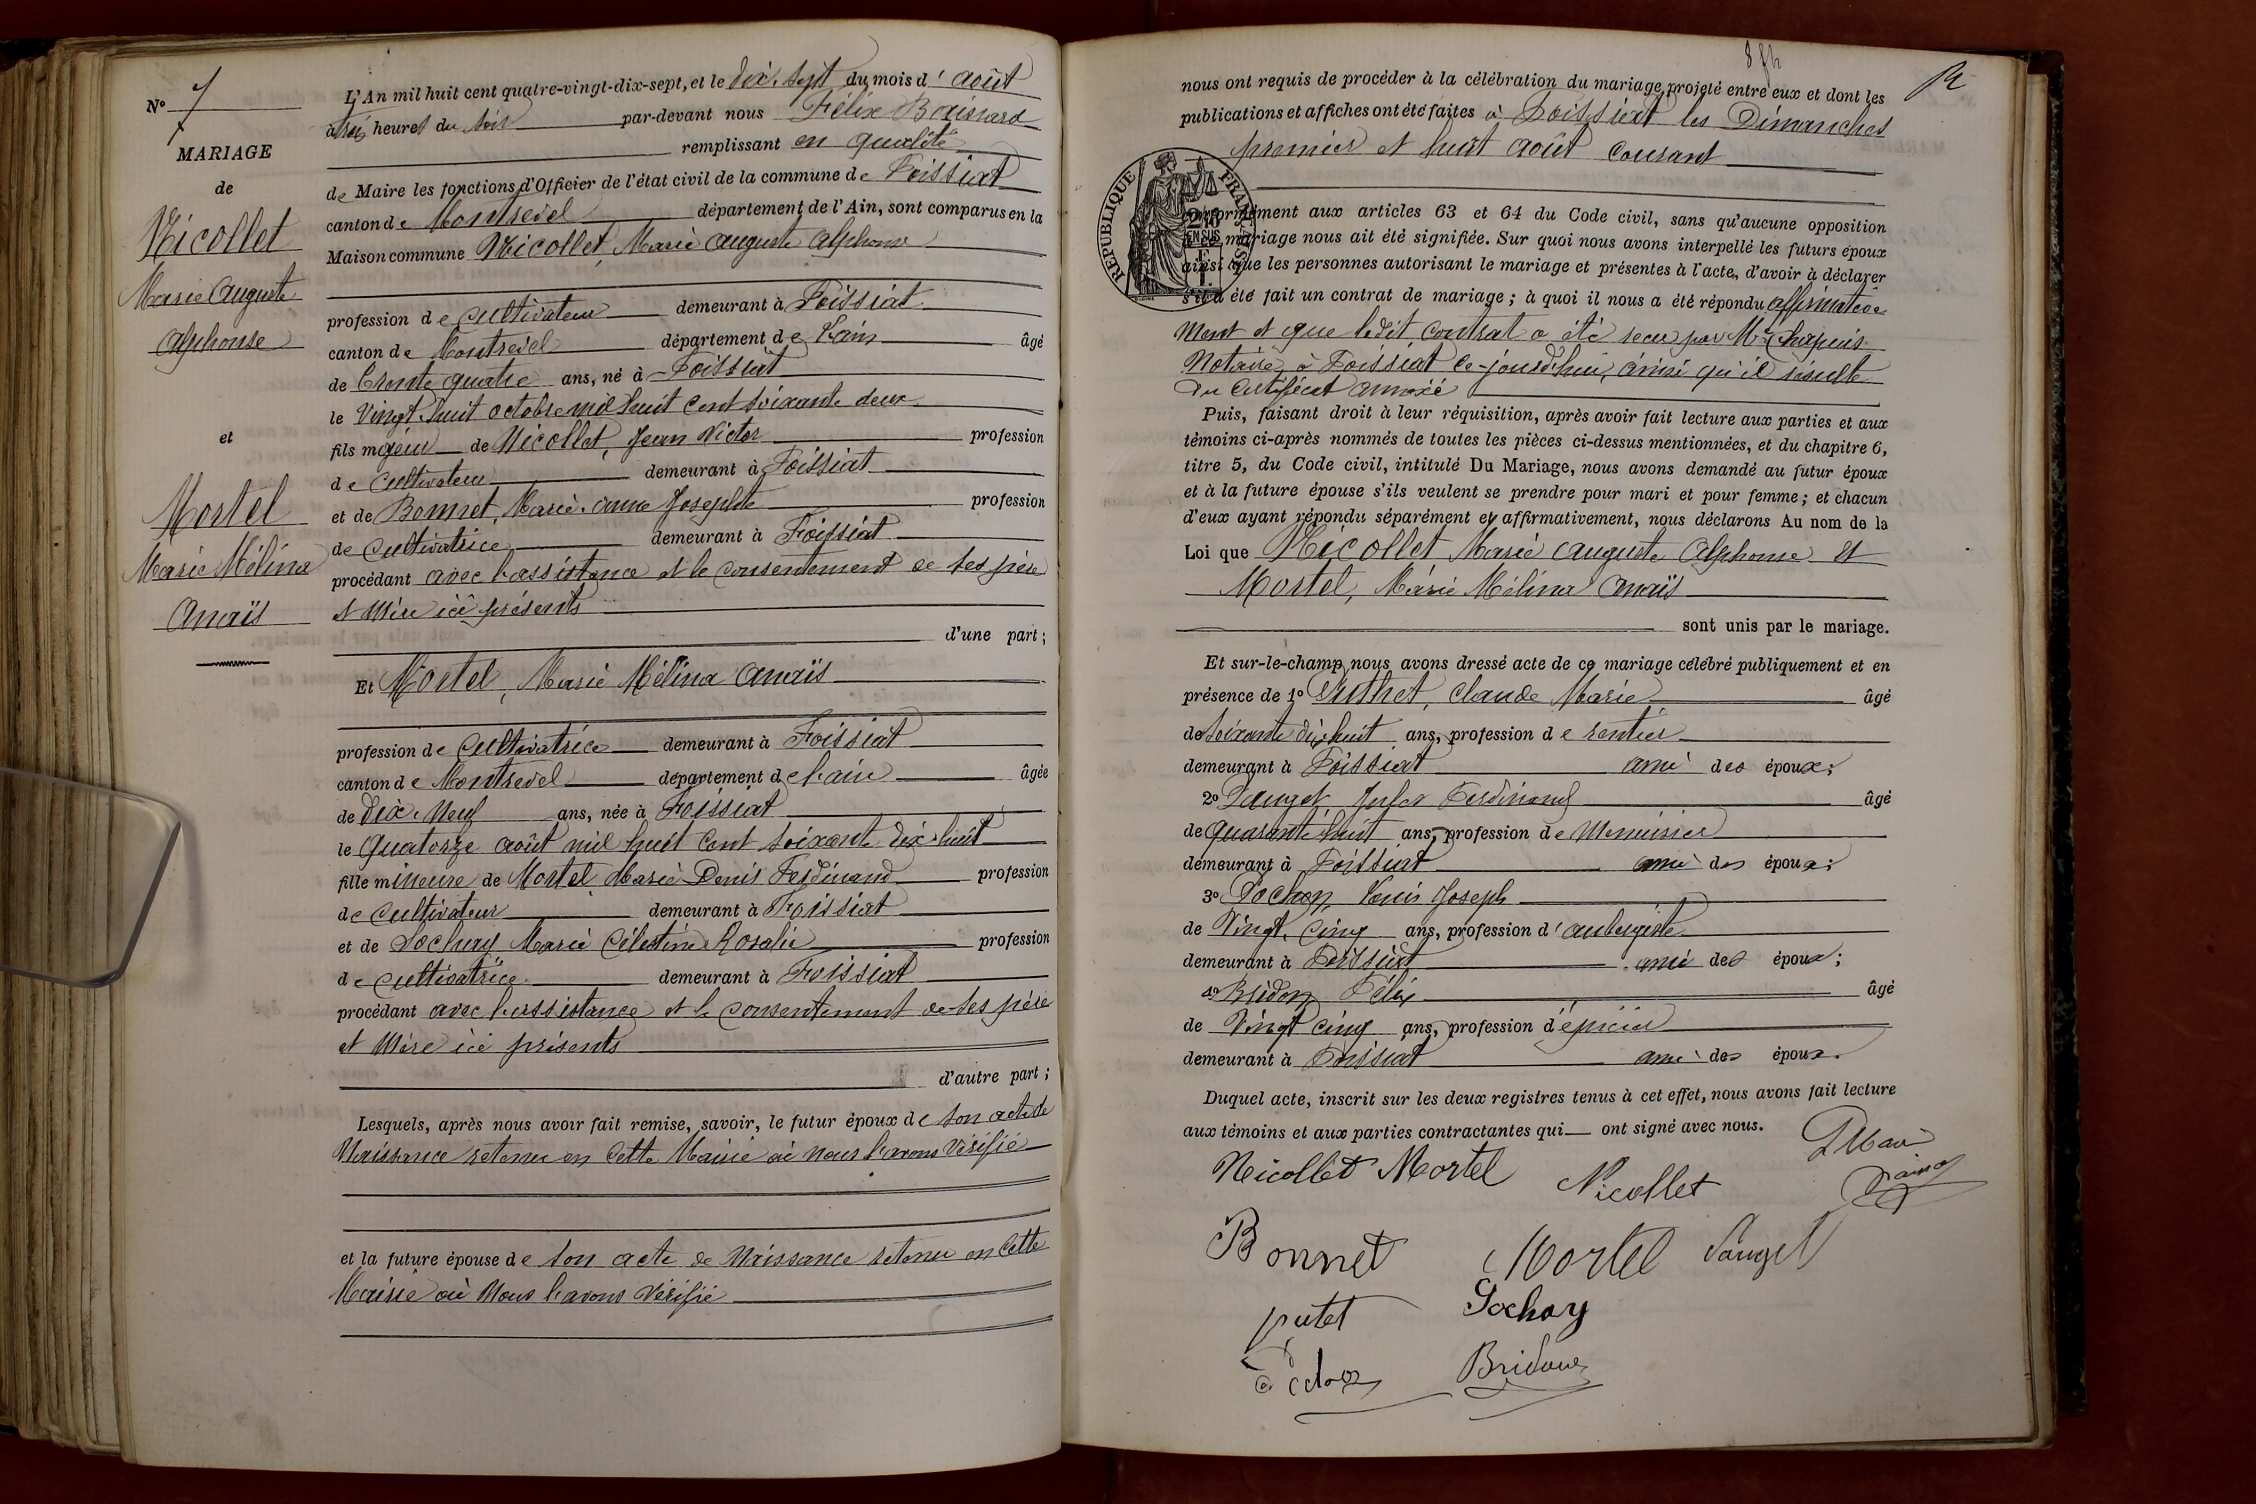 N° 7
MARIAGE
de
Nicollet
Marie Auguste
Alphonse
et
Mortel
Marie Mélina
Anaïs
L'An mil huit cent quatre-vingt-dix-sept, et le dix-sept du mois d'août
à trois heures du soir par-devant nous Félix
remplissant en qualité
de Maire les fonctions d'Officier de l'état civil de la commune de Foissiat
canton de Montrevel département de l'Ain, sont comparus en la
Maison commune Nicollet, Marie Auguste Alphonse
profession de cultivateur demeurant à Foissiat
canton de Montrevel département de l'ain âgé
de trente quatre ans, né à Foissiat
le vingt-huit octobre mil huit cent soixante deux
fils majeur de Nicollet, Jean Victor profession
de cultivateur demeurant à Foissiat
et de Bonnet, Marie-anne Josephte profession
de cultivatrice demeurant à Foissiat
procédant avec l'assistance et le consentement de ses père
et mère ici présents
d'une part;
Et Mortel, Marie Mélina Anaïs
profession de cultivatrice demeurant à Foissiat
canton de Montrevel département de l'ain âgée
de dix-neuf ans, née à Foissiat
le quatorze août mil huit cent soixante-dix-huit
fille mineure de Mortel Marie Denis Ferdinand profession
de cultivateur demeurant à Foissiat
et de Sochay Marie Célestine Rosalie profession
de cultivatrice demeurant à Foissiat
procédant avec l'assistance et le consentement de ses père
et mère ici présents
d'autre part;
Lesquels, après nous avoir fait remise, savoir, le futur époux de son acte de
naissance retenu en cette Mairie où nous l'avons vérifié
et la future épouse de son acte de naissance retenu en cette
Mairie où nous l'avons vérifié
nous ont requis de procéder à la célébration du mariage projeté entre eux et dont les
publications et affiches ont été faites à Foissiat les Dimanches
premier et huit août courant
RÉPUBLIQUE FRANÇAISE
conformément aux articles 63 et 64 du Code civil, sans qu'aucune opposition
à ce mariage nous ait été signifiée. Sur quoi nous avons interpellé les futurs époux
ainsi que les personnes autorisant le mariage et présentes à l'acte, d'avoir à déclarer
s'il a été fait un contrat de mariage; à quoi il nous a été répondu affirmative
ment et que ledit contrat a été reçu par Me Chapuis
Notaire à Foissiat ce-jourd'hui, ainsi qu'il résulte
du certificat annexé
Puis, faisant droit à leur réquisition, après avoir fait lecture aux parties et aux
témoins ci-après nommés de toutes les pièces ci-dessus mentionnées, et du chapitre 6,
titre 5, du Code civil, intitulé Du Mariage, nous avons demandé au futur époux
et à la future épouse s'ils veulent se prendre pour mari et pour femme; et chacun
d'eux ayant répondu séparément et affirmativement, nous déclarons Au nom de la
Loi que Nicollet Marie Auguste Alphonse et
Mortel, Marie Mélina Anaïs
sont unis par le mariage.
Et sur-le-champ, nous avons dressé acte de ce mariage célébré publiquement et en
présence de 1° Claude Marie âgé
de soixante dix huit ans, profession de rentier
demeurant à Foissiat ami des époux;
2° Ferdinand âgé
de quarante huit ans, profession de menuisier
demeurant à Foissiat ami des époux;
3° Pochon Louis Joseph
de vingt cinq ans, profession d'aubergiste
demeurant à Foissiat ami des époux;
4° Bridon Félix âgé
de vingt cinq ans, profession d'épicier
demeurant à Foissiat ami des époux.
Duquel acte, inscrit sur les deux registres tenus à cet effet, nous avons fait lecture
aux témoins et aux parties contractantes qui ont signé avec nous.
Nicollet Mortel Nicollet
Bonnet Mortel
Sochay